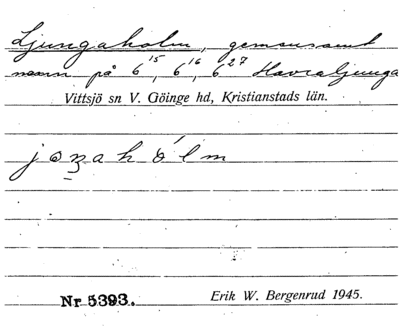 Ljungaholm, gemensamt
namn på 6¹⁵, 6¹⁶, 6²⁷ Havraljunga
Vittsjö sn V. Göinge hd, Kristianstads län.
Nr 5393. Erik W. Bergenrud 1945.